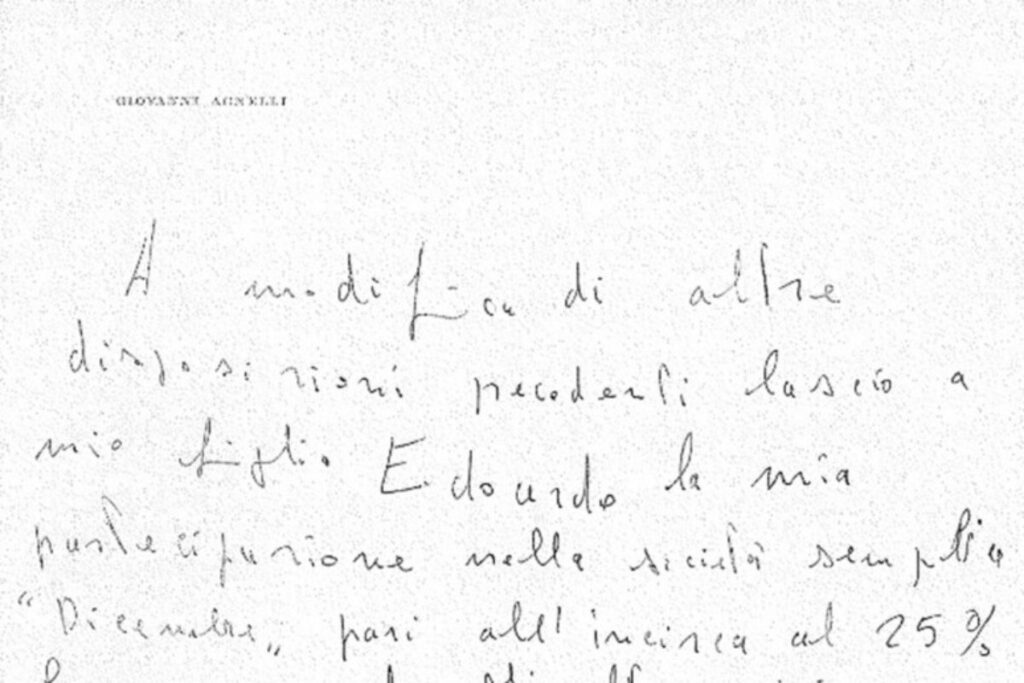 GIOVANNI AGNELLI
A modifica di altre
disposizioni precedenti lascio a
mio figlio Edoardo la mia
partecipazione nella società semplice
"Dicembre" pari all'incirca al 25%